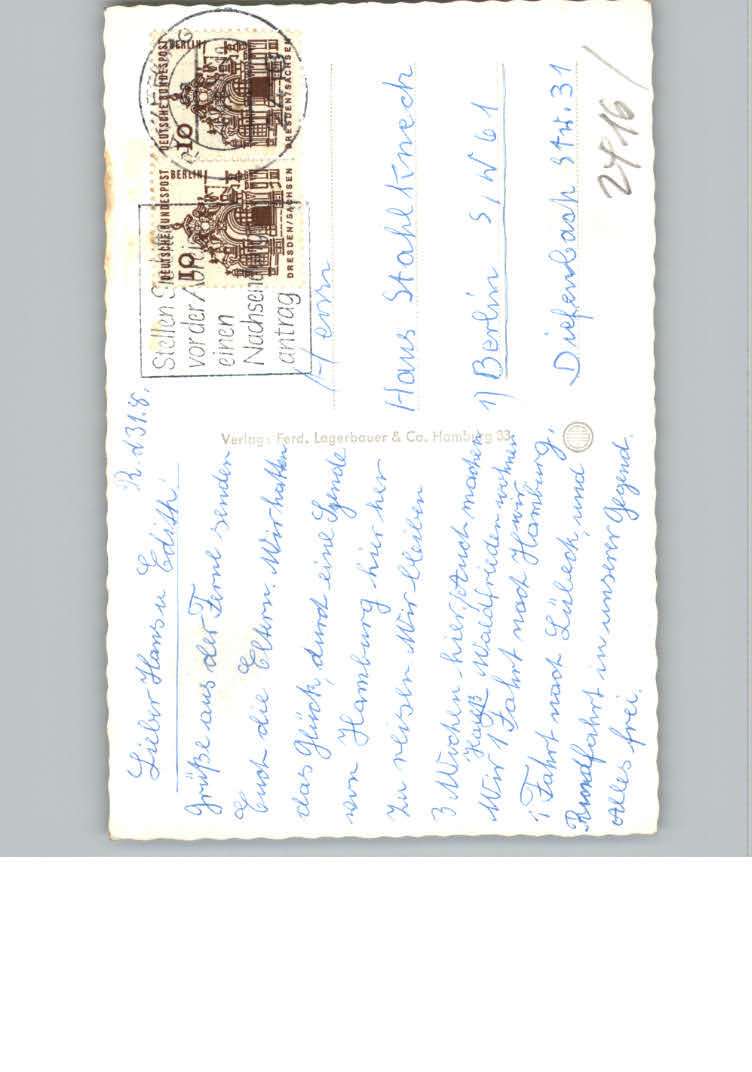 R. d 31.8.
Lieber Hans u Edith!
Grüße aus der Ferne senden
Euch die Eltern. Wir hatten
das Glück, durch eine Spende
von Hamburg hier her
zu reisen. Wir bleiben
3 Wochen hier, Auch machen
Hauß Waldfrieden wohnen wir
Wir 1 Fahrt nach Hamburg,
1 Fahrt nach Lübeck, und
Rundfahrt in unserer Gegend.
Alles frei.
Verlag: Ferd. Lagerbauer & Co. Hamburg 33
DEUTSCHE BUNDESPOST
BERLIN
10
DRESDEN/SACHSEN
DEUTSCHE BUNDESPOST
BERLIN
10
DRESDEN/SACHSEN
Stellen Sie
vor der
einen
Nachsen
antrag
Herrn
Hans Stahlknech
1) Berlin S,W 61
Diefenbach Str. 31
2416